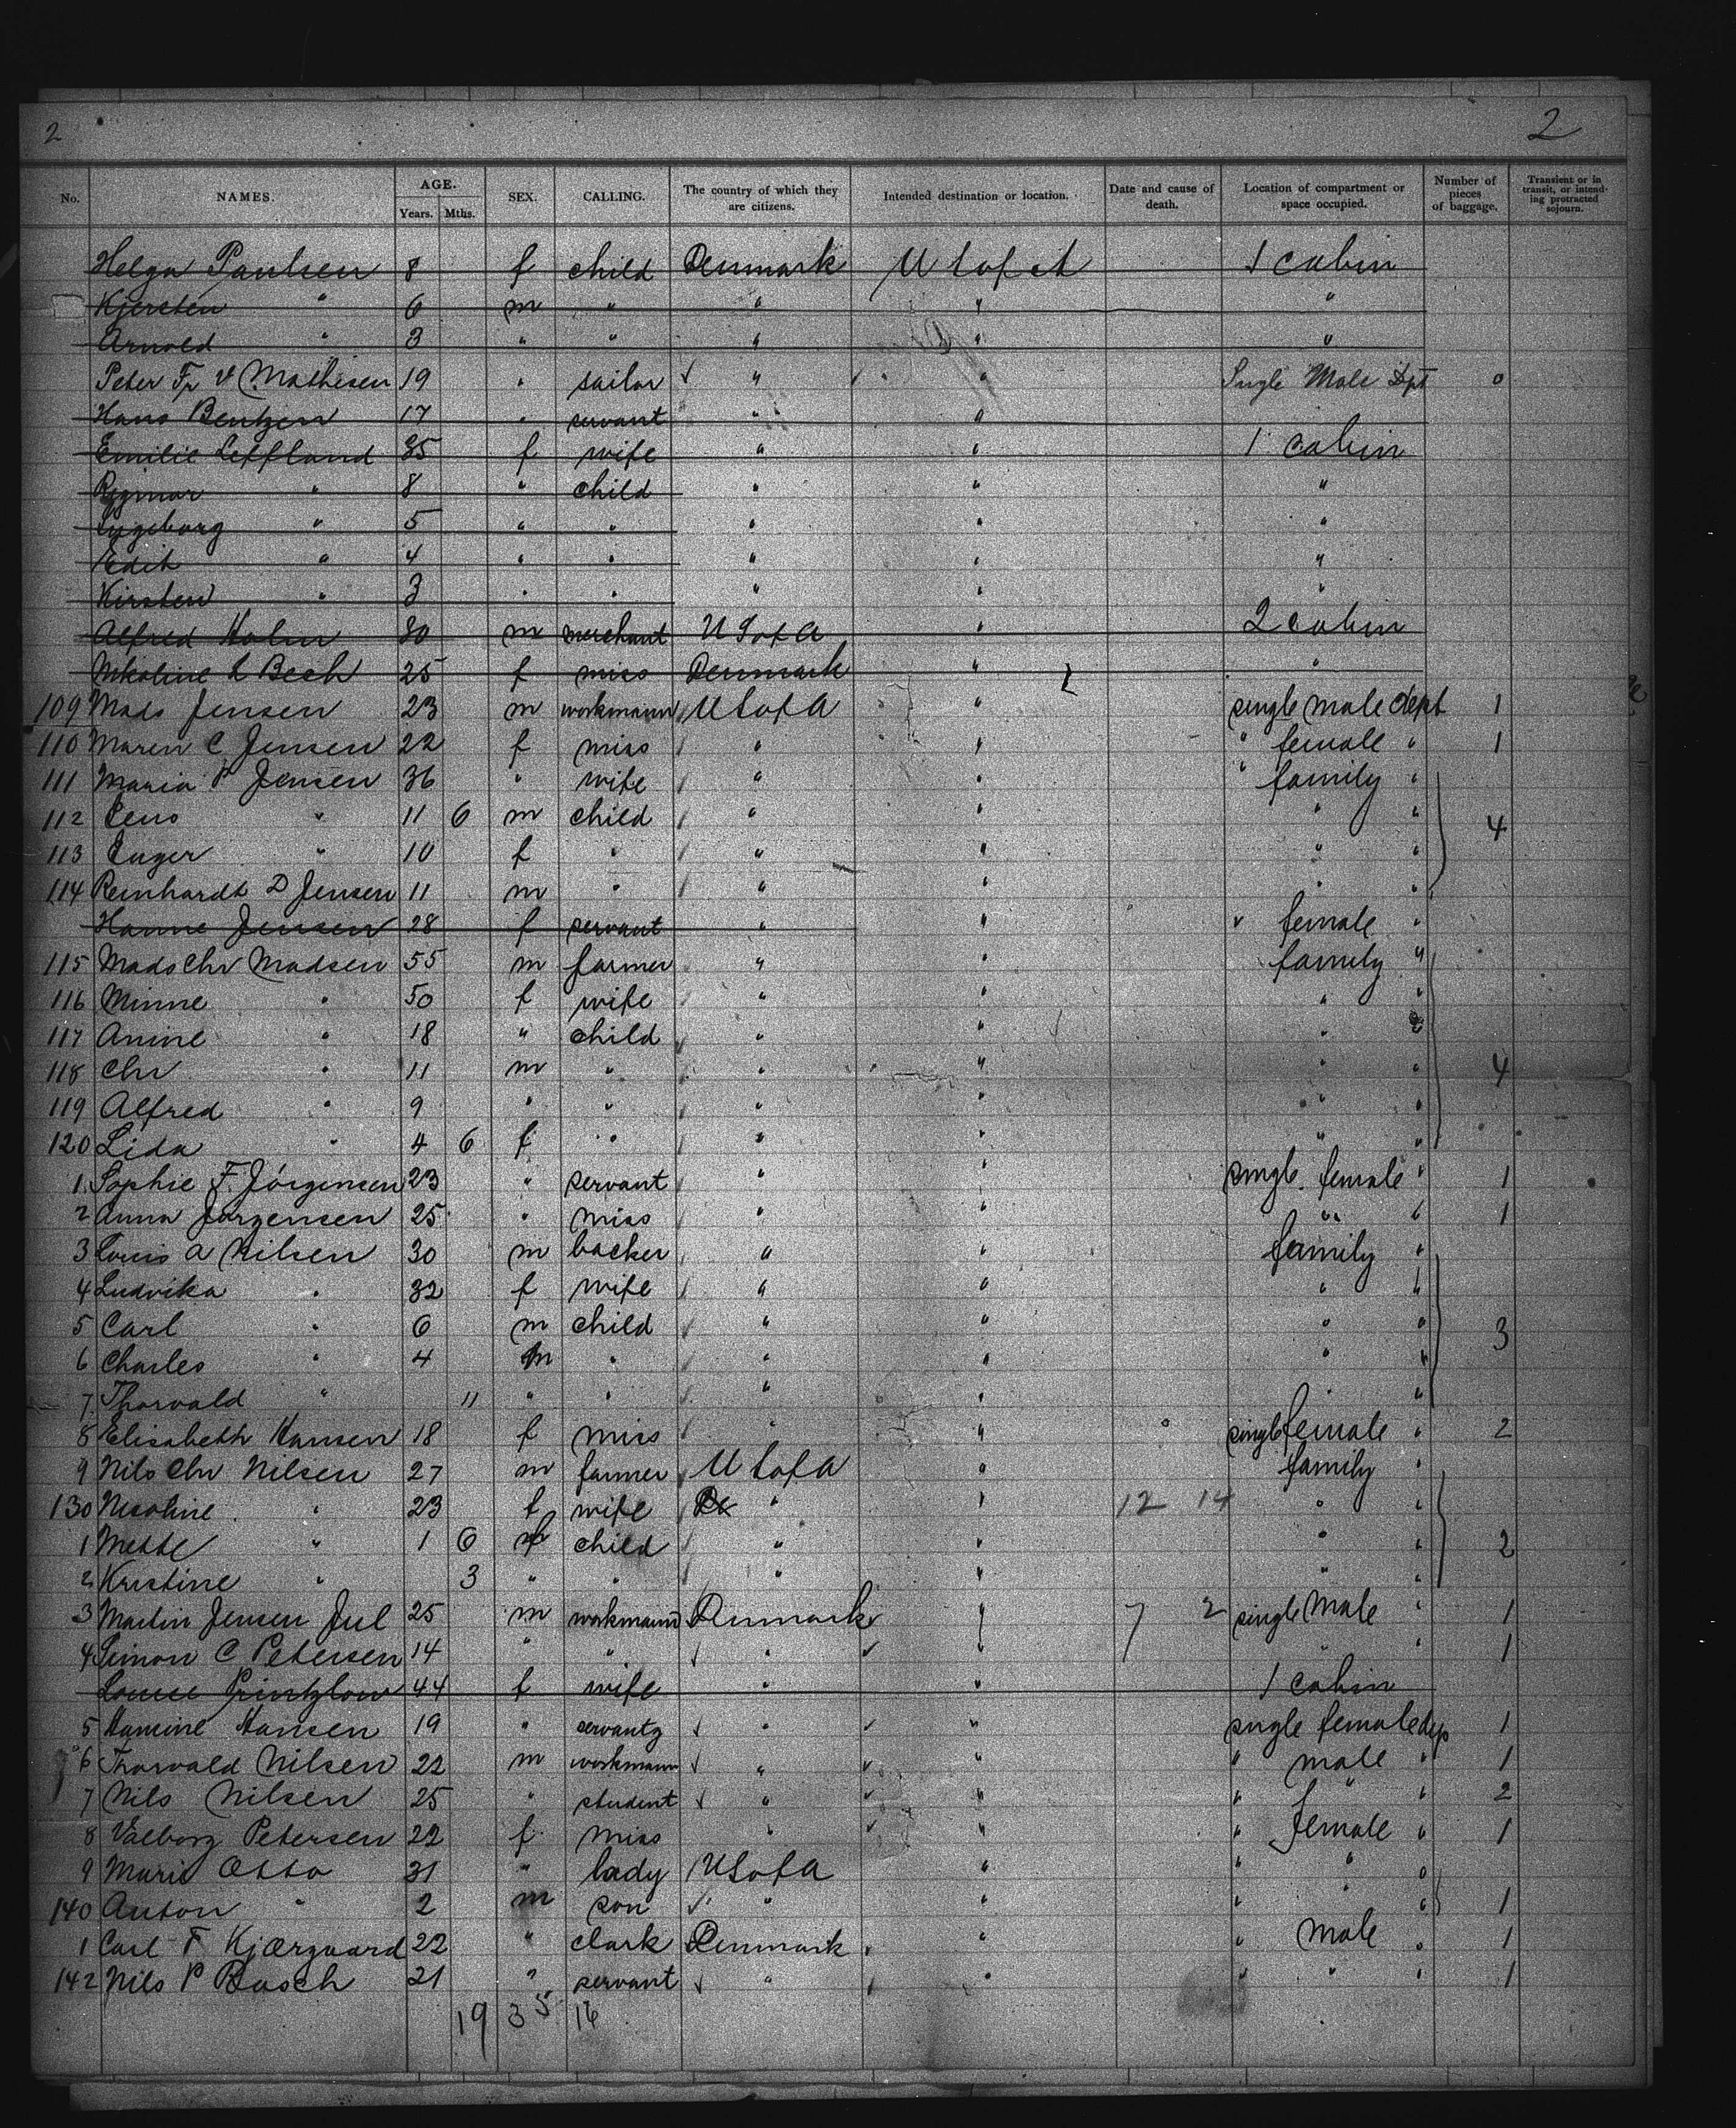 2 2
No. NAMES. AGE. Years. Mths. SEX. CALLING. The country of which they are citizens. Intended destination or location. Date and cause of death. Location of compartment or space occupied. Number of pieces of baggage. Transient or in transit, or intending protracted sojourn.
Helga Paulsen 8 f child Denmark U S of A 1 cabin
Kjersten " 6 m " " " "
Arnold " 3 " " " " "
Peter Fr V Mathisen 19 " sailor " " Single Male Dpt 0
Hans Bentzen 17 " servant " "
Emilie Leffland 35 f wife " " 1 cabin
Rigmor " 8 " child " " "
Ingeborg " 5 " " " " "
Edit " 4 " " " " "
Kirsten " 3 " " " " "
Alfred Holm 30 m merchant U S of A " 2 cabin
Nikoline L Bech 25 f miss Denmark " "
109 Mads Jensen 23 m workmann U S of A " single male dept 1
110 Maren C Jensen 22 f miss " " " female " 1
111 Maria P Jensen 36 " wife " " " family "
112 Jens " 11 6 m child " " " " 4
113 Inger " 10 f " " " " "
114 Reinhardt D Jensen 11 m " " " " "
Hanne Jensen 28 f servant " " " female "
115 Mads Chr Madsen 55 m farmer " " family "
116 Minne " 50 f wife " " " "
117 Anine " 18 " child " " " "
118 Chr " 11 m " " " " " 4
119 Alfred " 9 " " " " " "
120 Lida " 4 6 f " " " " "
1 Sophie F. Jörgensen 23 " servant " " single female " 1
2 Anna Jörgensen 25 " miss " " " " 1
3 Louis A Nilsen 30 m backer " " family "
4 Ludvika " 32 f wife " " " "
5 Carl " 6 m child " " " " 3
6 Charles " 4 m " " " " "
7 Thorvald " 11 " " " " " "
8 Elisabeth Hansen 18 f miss " " single female " 2
9 Nils Chr Nilsen 27 m farmer U S of A " family "
130 " 23 f wife De " " 12 14 " "
1 Mette " 1 6 f child " " " " 2
2 Kristine " 3 " " " " " "
3 Martin Jensen Jul 25 m workmann Denmark " 7 2 single male " 1
4 Simon C Petersen 14 " " " " " " 1
Louise Printzlow 44 f wife " " 1 cabin
5 Hamine Hansen 19 " servant " " single female dep 1
6 Thorvald Nilsen 22 m workmann " " " male " 1
7 Nils Nilsen 25 " student " " " " " 2
8 Valborg Petersen 22 f miss " " " female " 1
9 Marie Otto 31 " lady U S of A " " " "
140 Anton " 2 m son " " " " " 1
1 Carl F Kjærgaard 22 " clark Denmark " " male " 1
142 Nils P Basch 21 " servant " " " " " 1
19 35 16